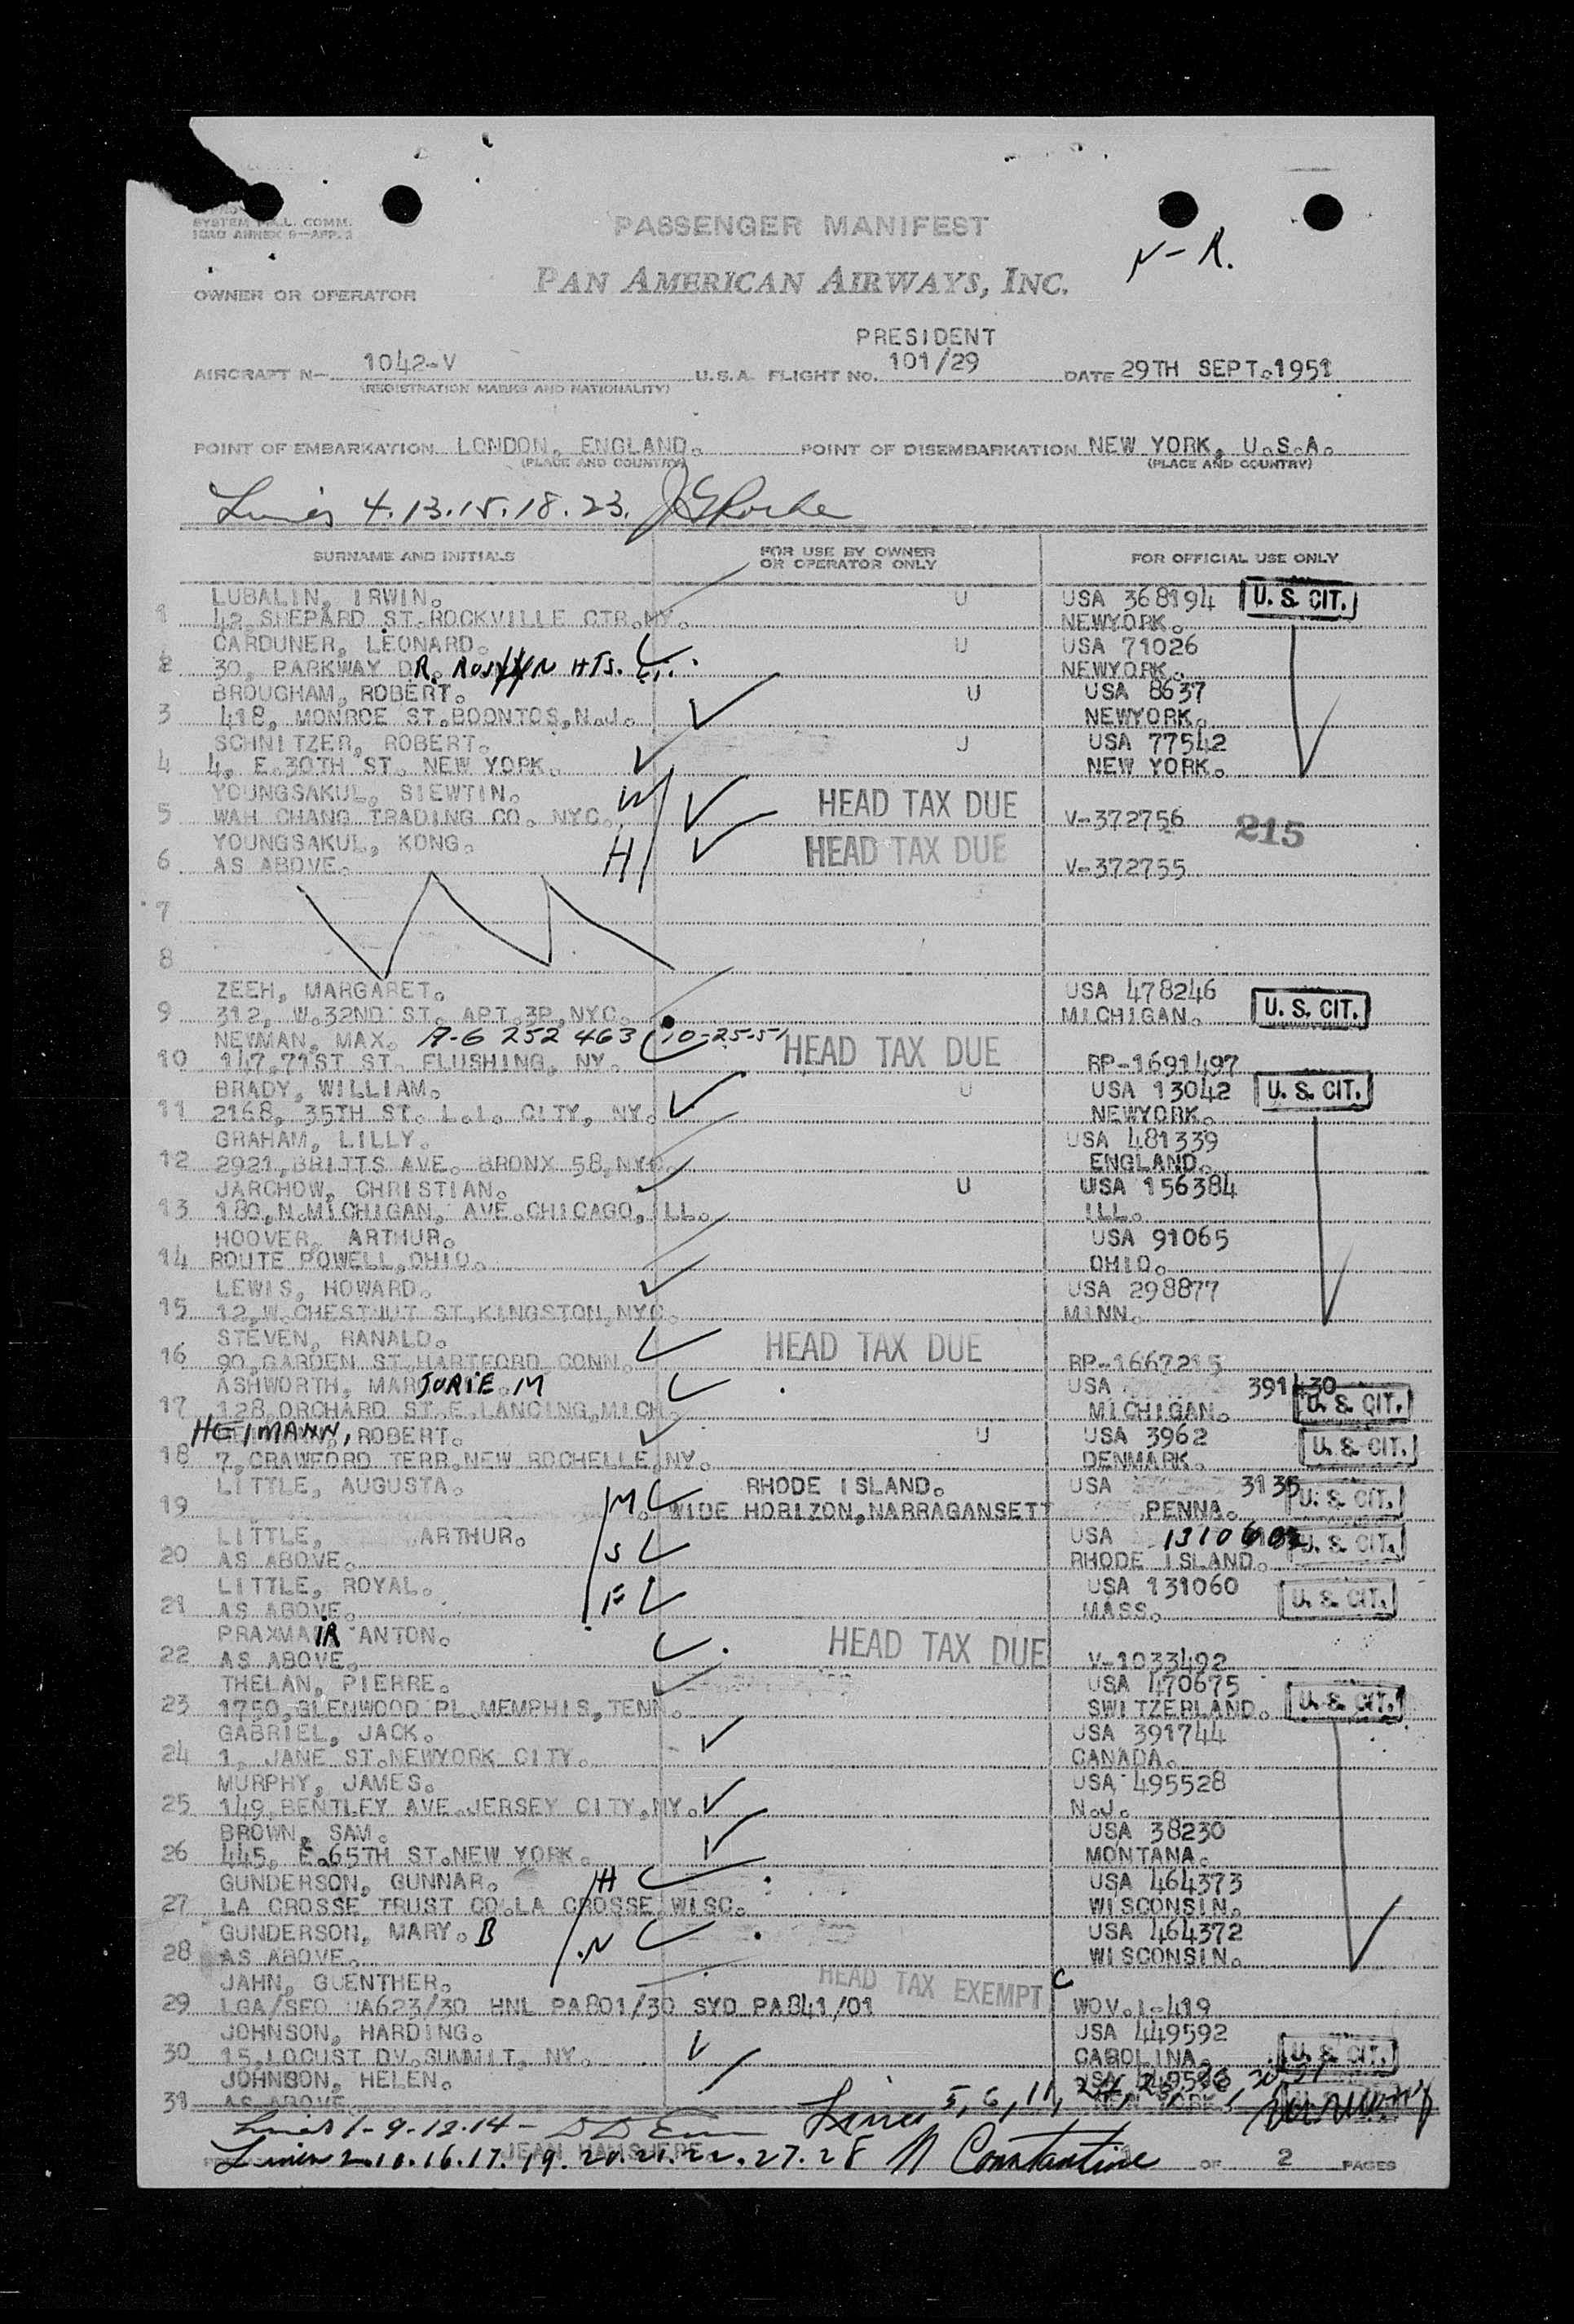 SYSTEM MAL. COMM.
ICAO ANNEX 9—APP. 3
PASSENGER MANIFEST
PAN AMERICAN AIRWAYS, INC.
OWNER OR OPERATOR
PRESIDENT
AIRCRAFT N— 1042-V U.S.A. FLIGHT NO. 101/29 DATE 29TH SEPT.1951
(REGISTRATION MARKS AND NATIONALITY)
POINT OF EMBARKATION LONDON, ENGLAND. POINT OF DISEMBARKATION NEW YORK, U.S.A.
(PLACE AND COUNTRY) (PLACE AND COUNTRY)
Lines 4.13.15.18.23.
SURNAME AND INITIALS FOR USE BY OWNER OR OPERATOR ONLY FOR OFFICIAL USE ONLY
LUBALIN, IRWIN. U USA 368194 U. S. CIT.
1 42, SHEPARD ST. ROCKVILLE CTR.NY. NEWYORK.
CARDUNER, LEONARD. U USA 71026
2 30, PARKWAY DR. ROSLYN HTS. L.I. NEWYORK.
BROUGHAM, ROBERT. U USA 8637
3 418, MONROE ST.BOONTOS,N.J. NEWYORK.
SCHNITZER, ROBERT. U USA 77542
4 4, E.30TH ST. NEW YORK. NEW YORK.
YOUNGSAKUL, SIEWTIN. W HEAD TAX DUE
5 WAH CHANG TRADING CO. NYC. V-372756 215
YOUNGSAKUL, KONG. H HEAD TAX DUE
6 AS ABOVE. V-372755
7
8
ZEEH, MARGARET. USA 478246
9 312, W.32ND ST. APT.3P,NYC. MICHIGAN. U. S. CIT.
NEWMAN, MAX. A-6 252 463 10-25-51 HEAD TAX DUE
10 147,71ST ST. FLUSHING, NY. RP-1691497
BRADY, WILLIAM. U USA 13042 U. S. CIT.
11 2168, 35TH ST. L.I. CITY, NY. NEWYORK.
GRAHAM, LILLY. USA 481339
12 2921,BRITTS AVE. BRONX 58,NYC. ENGLAND.
JARCHOW, CHRISTIAN. U USA 156384
13 180,N.MICHIGAN, AVE.CHICAGO, ILL. ILL.
HOOVER, ARTHUR. USA 91065
14 ROUTE POWELL,OHIO. OHIO.
LEWIS, HOWARD. USA 298877
15 12,W.CHESTNUT ST.KINGSTON,NYC. MINN.
STEVEN, RANALD. HEAD TAX DUE
16 90,GARDEN ST.HARTFORD CONN. RP-1667215
ASHWORTH, MARJORIE.M USA 391430
17 128,ORCHARD ST.E.LANCING,MICH. MICHIGAN. U. S. CIT.
HEIMANN, ROBERT. U USA 3962
18 7,CRAWFORD TERR.NEW ROCHELLE,NY. DENMARK. U. S. CIT.
LITTLE, AUGUSTA. RHODE ISLAND. USA 3135
19 M WIDE HORIZON,NARRAGANSETT PENNA. U. S. CIT.
LITTLE, ARTHUR. USA
20 AS ABOVE. S RHODE ISLAND. U. S. CIT.
LITTLE, ROYAL. F USA 131060
21 AS ABOVE. MASS. U. S. CIT.
PRAXMAIR ANTON. HEAD TAX DUE
22 AS ABOVE. V-1033492
THELAN, PIERRE. USA 470675
23 1750,GLENWOOD PL.MEMPHIS,TENN. SWITZERLAND. U. S. CIT.
GABRIEL, JACK. USA 391744
24 1, JANE ST.NEWYORK CITY. CANADA.
MURPHY, JAMES. USA 495528
25 149,BENTLEY AVE.JERSEY CITY,NY. N.J.
BROWN, SAM. USA 38230
26 445, E.65TH ST.NEW YORK. MONTANA.
GUNDERSON, GUNNAR. H USA 464373
27 LA CROSSE TRUST CO.LA CROSSE,WISC. WISCONSIN.
GUNDERSON, MARY. B USA 464372
28 AS ABOVE. W WISCONSIN.
JAHN, GUENTHER. HEAD TAX EXEMPT C
29 LGA/SFO UA623/30 HNL PA801/30 SYD PA841/01 WOV.I-419
JOHNSON, HARDING. USA 449592
30 15,LOCUST DV.SUMMIT, NY. CAROLINA. U. S. CIT.
JOHNSON, HELEN. USA
31 AS ABOVE. Lines 5, 6, 11,
Lines 1-9-12-14-
Lines 2.10.16.17.19.20.21.22.27.28 N Constantine
OF 2 PAGES
N-R.